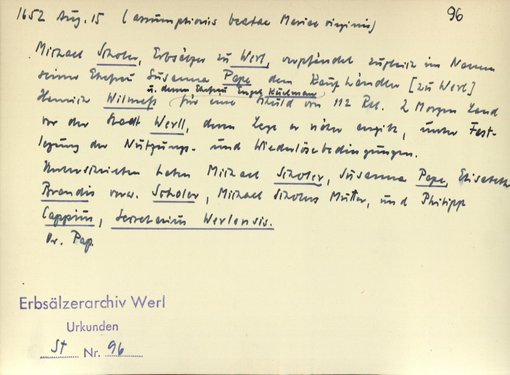 1652 Aug. 15 (assumptionis beatae Mariae virginis) 96
Michael Scholer, Erbsälzer zu Werl, verpfändet zugleich im Namen
seiner Ehefrau Susanna Pape dem Kaufhändler [zu Werl]
u. dessen Ehefrau Engel Kuelmann
Henrich Wilmeß für eine Schuld von 112 Rtl. 2 Morgen Land
vor der Stadt Werll, deren Lage er näher angibt, unter Fest-
legung der Nutzungs- und Wiederlösebedingungen.
Unterschrieben haben Michael Scholer, Susanna Pape, Elisabeth
Brandis verw. Scholer, Michael Scholers Mutter, und Philipp
Cappius, Secretarius Werlensis.
Or. Pap.
Erbsälzerarchiv Werl
Urkunden
St Nr. 96